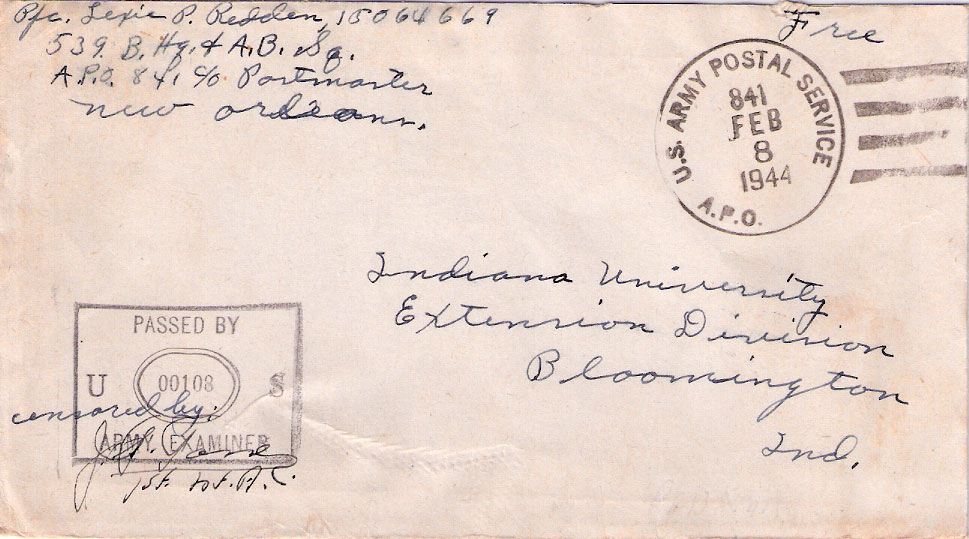 Pfc. Lexie P. Redden, 15064669
539 B. Hq. & A.B. Sq.
A.P.O. 841 c/o Postmaster
New Orleans.
Free
U.S. ARMY POSTAL SERVICE
841
FEB
8
1944
A.P.O.
Indiana University
Extension Division
Bloomington
Ind.
PASSED BY
U 00108 S
censored by:
ARMY EXAMINER
1st Lt. A.C.